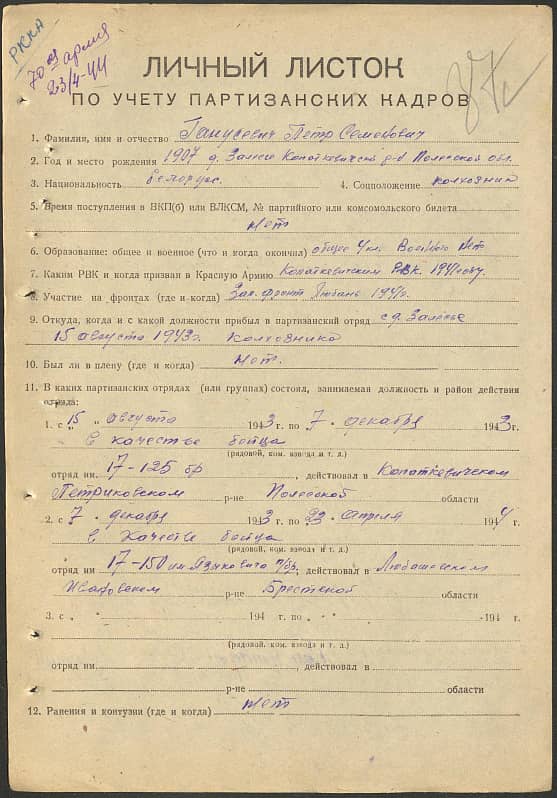 РККА
70ая армия
23/4-44
ЛИЧНЫЙ ЛИСТОК
ПО УЧЕТУ ПАРТИЗАНСКИХ КАДРОВ
1. Фамилия, имя и отчество Ганусевич Петр Семенович
2. Год и место рождения 1907 д. Залесье Копаткевичский р-н Полесской обл.
3. Национальность белорус. 4. Соцположение колхозник
5. Время поступления в ВКП(б) или ВЛКСМ, № партийного или комсомольского билета
Нет
6. Образование: общее и военное (что и когда окончил) общее 4 кл. Военное Нет
7. Каким РВК и когда призван в Красную Армию Копаткевичским РВК 1941 году
8. Участие на фронтах (где и когда) Зап. Фронт Любань 1941г.
9. Откуда, когда и с какой должности прибыл в партизанский отряд с д. Залесье
15 августа 1943г. колхозника
10. Был ли в плену (где и когда) Нет.
11. В каких партизанских отрядах (или группах) состоял, занимаемая должность и район действия
отряда:
1. с „ 15 „ августа 1943 г. по 7 декабря 1943 г.
в качестве бойца
(рядовой, ком. взвода и т. д.)
отряд им. 17-125 бр, действовал в Копаткевичском
Петриковском р-не Полесской области
2. с 7 декабря 1943 г. по 23 апреля 1944 г.
в качестве бойца
(рядовой, ком. взвода и т. д.)
отряд им 17-150 им Языковича п/бр, действовал в Любашевском
Ивановском р-не Брестской области
3. с „ 194 г. по „ „ -194 г.
(рядовой, ком. взвода и т. д.)
отряд им. действовал в
р-не области
12. Ранения и контузии (где и когда) Нет